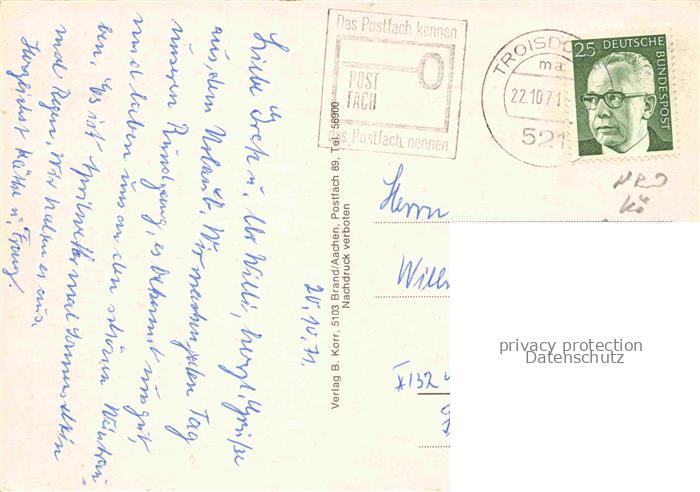 20.10.71.
Liebe Gret u. Ur Willi, herzl. Grüße
aus dem Urlaub. Wir machen jeden Tag
unseren Rundgang, es bekommt uns gut,
und laben uns an den schönen Weintrau-
ben. Es ist Aprilwetter mal Sonnenschein
mal Regen, Wir halten es aus.
Herzlichst Käthe u. Franz.
Verlag B. Korr, 5103 Brand/Aachen, Postfach 89, Tel. 56900
Nachdruck verboten
Das Postfach kennen
POST
FACH
Das Postfach nennen
TROISDO
ma
22.10.71
521
25 DEUTSCHE
BUNDESPOST
NRD
Kö
Herrn
Will
privacy protection
Datenschutz